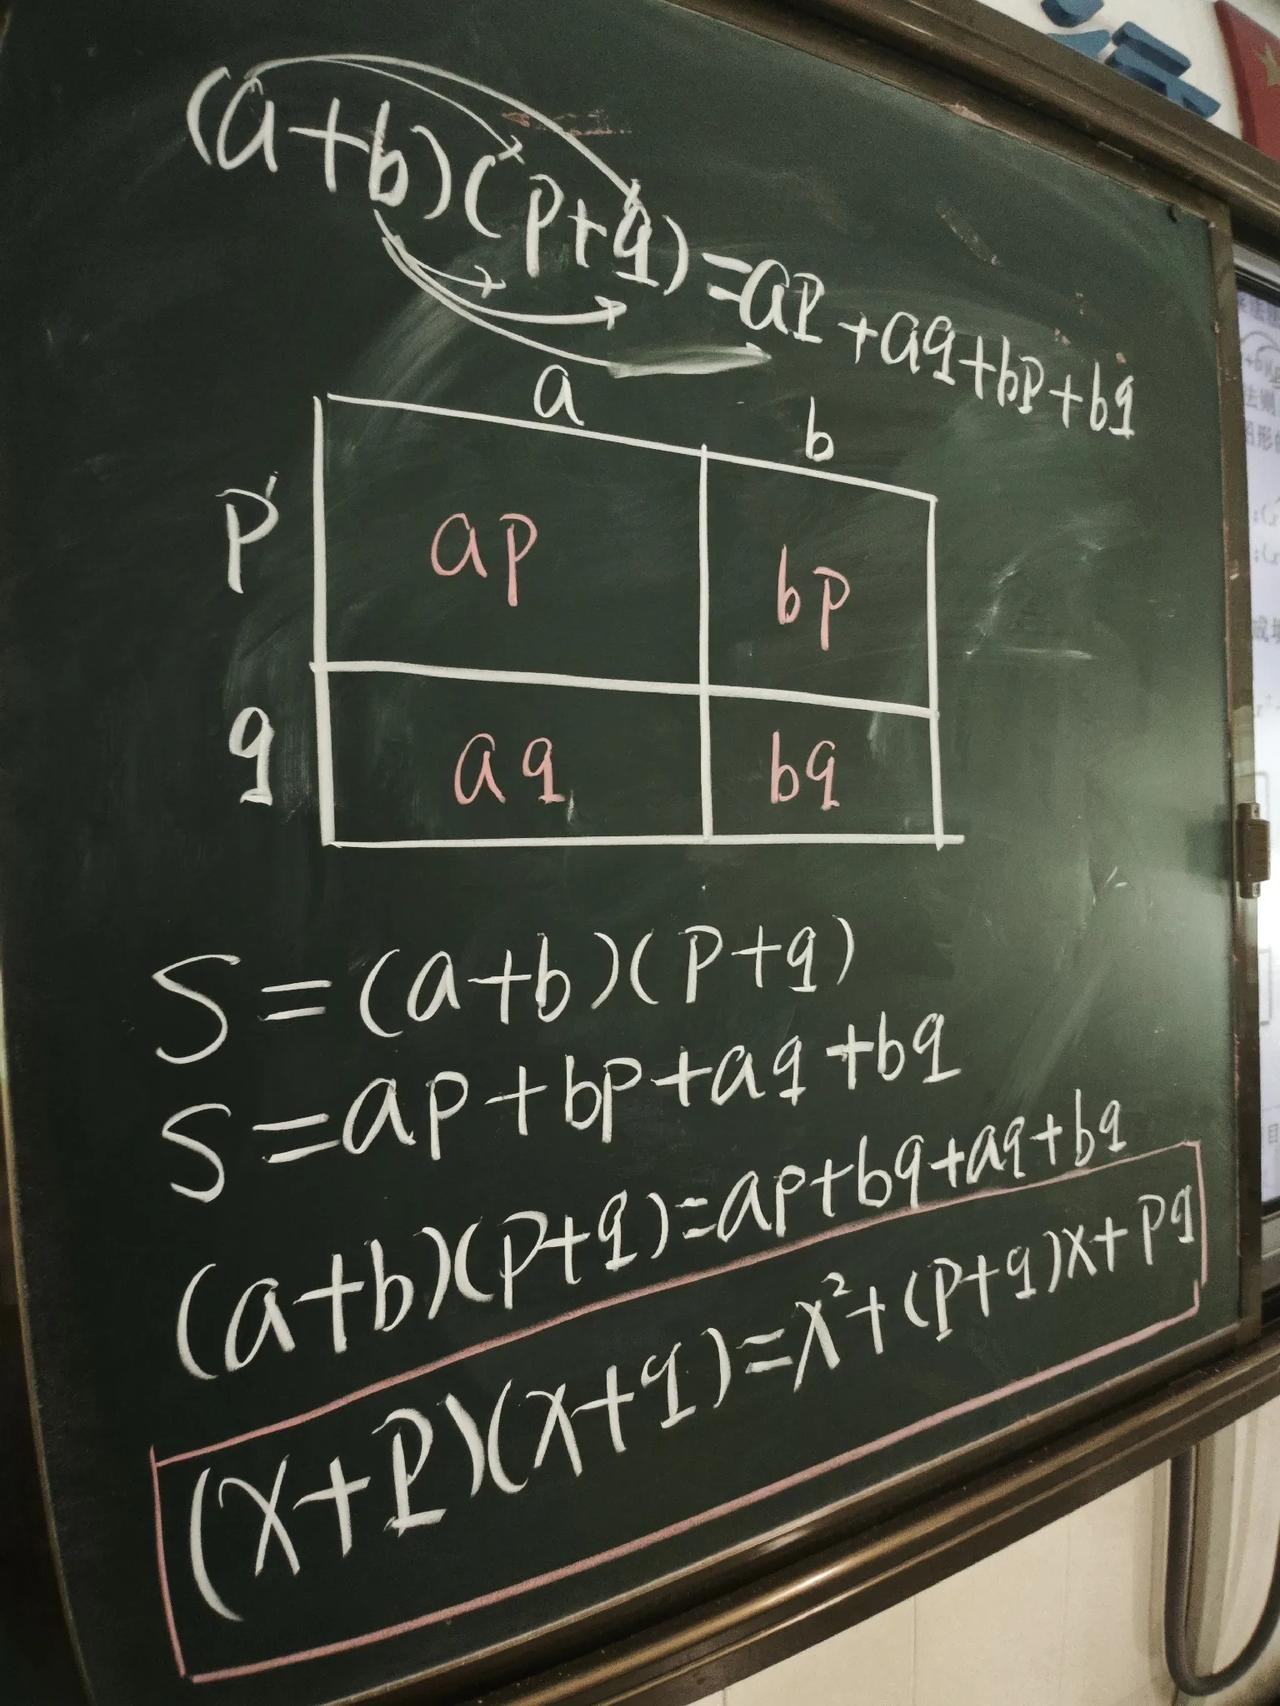 (a+b)(p+q)=ap+aq+bp+bq
a b
p ap bp
q aq bq
S=(a+b)(p+q)
S=ap+bp+aq+bq
(a+b)(p+q)=ap+bq+aq+bq
(x+p)(x+q)=x²+(p+q)x+pq
法则